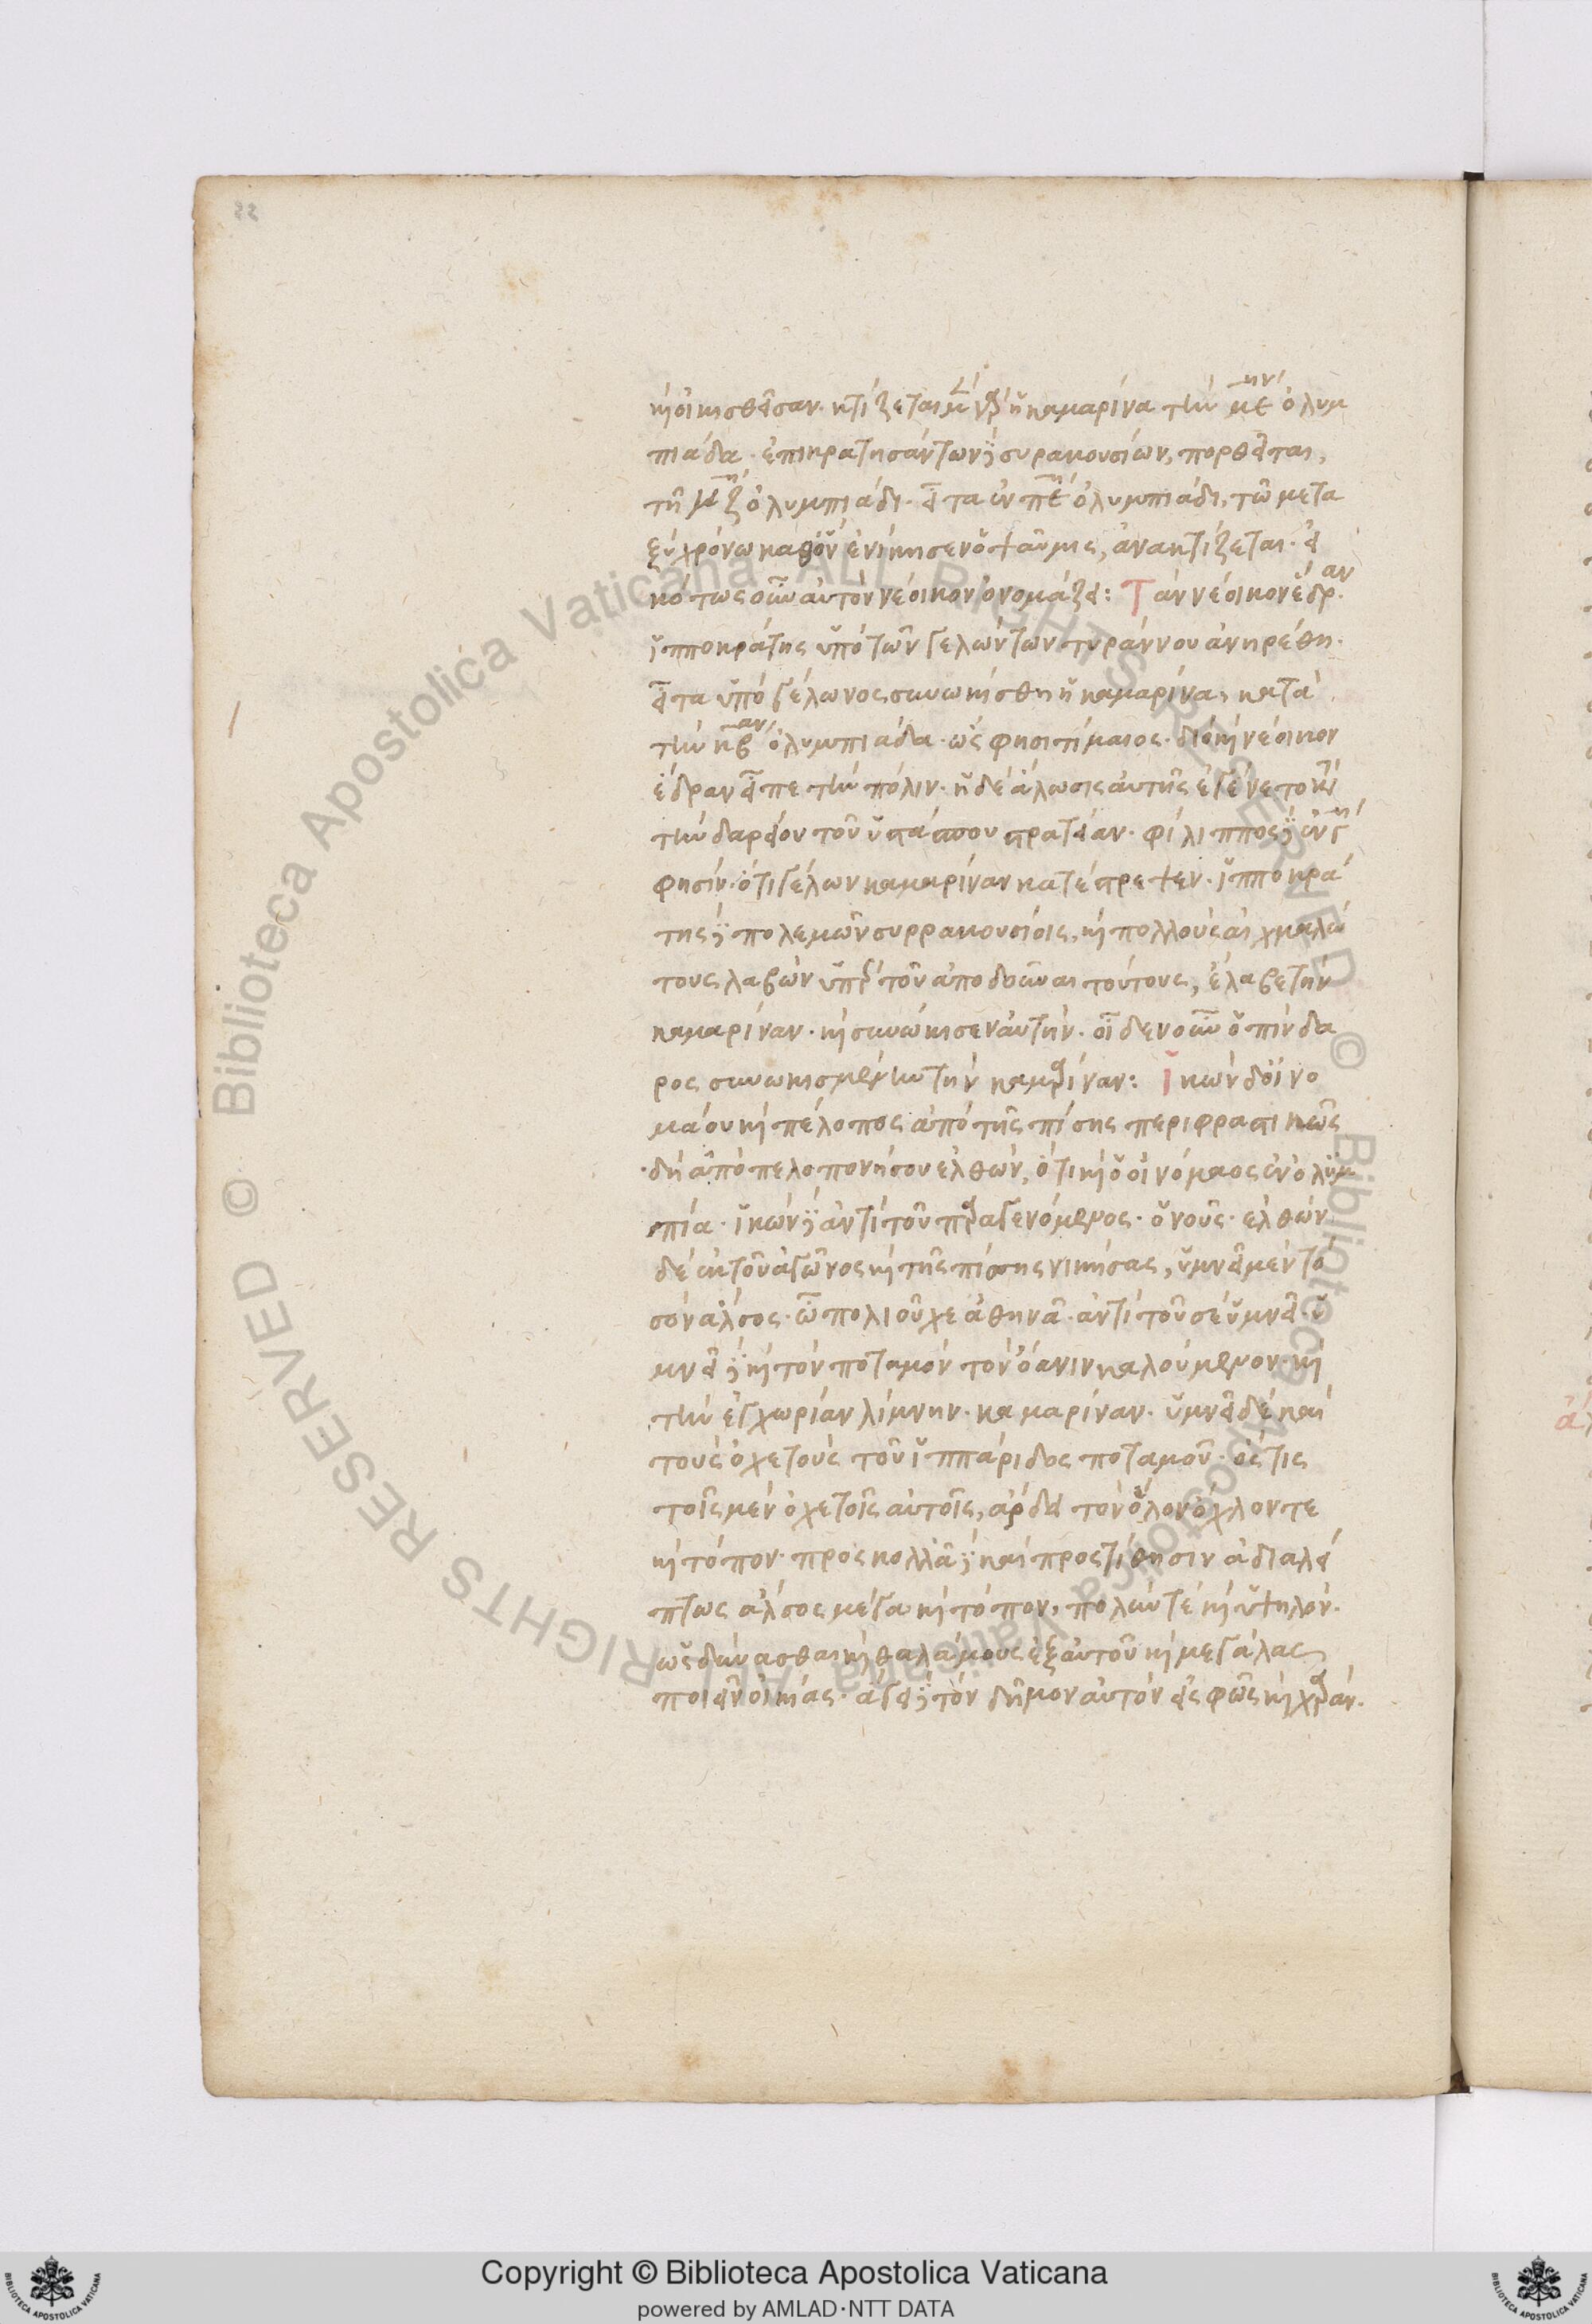 22
κ οἰκισθεῖσαν. κτίζεται μὲν γὰρ ἡ καμαρίνα τὴν με ὀλυμ
πιάδα. ἐπικρατησάντων συρακουσίων, πορθεῖται,
τῆ ὀλυμπιάδι. εἶτα ἐν πε ὀλυμπιάδι, τῶ μετα
ξὺ χρόνω καθ' ὃν ἐνίκησεν ὁ ψαῦμις, ἀνακτίζεται. εἰ
κότως οὖν αὐτὸν νέοικον ὀνομάζει: Τὰν νέοικον ἕδραν
ἱπποκράτης ὑπὸ τῶν γελώντων τυράννου ἀνηρέθη.
εἶτα ὑπὸ γέλωνος συνωκίσθη ἡ καμαρίνα, κατὰ
τὴν μβ ὀλυμπιάδα. ὥς φησι τίμαιος. διὸ κ νέοικον
ἕδραν εἶπε τὴν πόλιν. ἡ δὲ ἅλωσις αὐτῆς ἐγένετο κατὰ
τὴν δαρείου τοῦ ὑστάσπου στρατείαν. φίλιππος ἐν γ
φησὶν. ὅτι γέλων καμαρίναν κατέστρεψεν. ἱπποκρά
της πολεμῶν συρρακουσίοις, κ πολλοὺς αἰχμαλώ
τους λαβὼν ὑπὲρ τοῦ ἀποδοῦναι τούτους, ἔλαβε τὴν
καμαρίναν. κ συνώκισεν αὐτὴν. οἶδεν οὖν ὁ πίνδα
ρος συνωκισμένην τὴν καμαρίναν: Ἵκων δ' οἰνο
μάου κ πέλοπος ἀπὸ τῆς πίσης περιφραστικῶς
δὴ ἀπὸ πελοπονήσου ἐλθών, ὅτι κ ὁ οἰνόμαος ἐν ὀλυμ
πία. ἵκων ἀντὶ τοῦ παραγενόμενος. ὁ νοῦς. ἐλθὼν
δὲ ἐκ τοῦ ἀγῶνος κ τῆς πίσσης νικήσας, ὑμνεῖ μὲν τὸ
σὸν ἄλσος. ὦ πολιοῦχε ἀθηνᾶ. ἀντὶ τοῦ σὲ ὑμνεῖ. ὑ
μνεῖ κ τὸν ποταμὸν τὸν ὄανιν καλούμενον. κ
τὴν ἐγχωρίαν λίμνην. καμαρίναν. ὑμνεῖ δὲ καὶ
τοὺς ὀχετοὺς τοῦ ἱππάριδος ποταμοῦ. ὅς τις
τοῖς μὲν ὀχετοῖς αὐτοῖς, ἄρδει τὸν ὅλον ὄχλον τε
κ τόπον. προς κολλᾶ καὶ προστίθησιν ἀδιαλεί
πτως ἄλσος μέγα κ τόπον, πολύν τε κ ὑψηλόν.
ὡς δύνασθαι κ θαλάμους ἐξ αὐτοῦ κ μεγάλας
ποιεῖν οἰκίας. ἄγει τὸν δῆμον αὐτὸν εἰς φῶς κ χαράν.
Copyright © Biblioteca Apostolica Vaticana
powered by AMLAD·NTT DATA